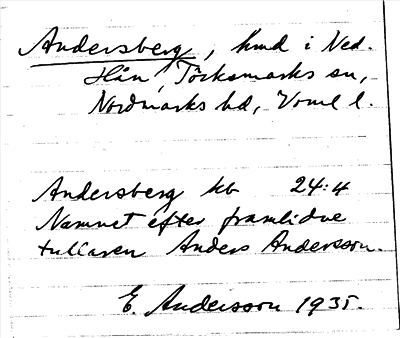 Andersberg, hmd i Ned.
Hån, Töcksmarks sn,
Nordmarks hd, Verml l.
Andersberg kb 24:4
Namnet efter framlidne
tullaren Anders Andersson.
E. Andersson 1935.